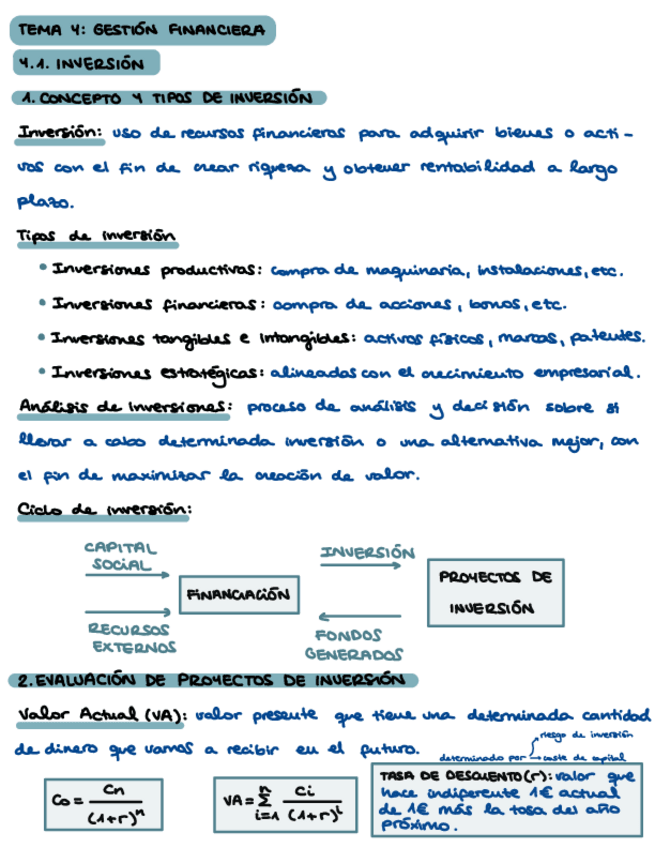 TEMA 4: GESTIÓN FINANCIERA
4.1. INVERSIÓN
1. CONCEPTO Y TIPOS DE INVERSIÓN
Inversión: uso de recursos financieros para adquirir bienes o acti-
vos con el fin de crear riqueza y obtener rentabilidad a largo
plazo.
Tipos de inversión
• Inversiones productivas: compra de maquinaria, instalaciones, etc.
• Inversiones financieras: compra de acciones, bonos, etc.
• Inversiones tangibles e intangibles: activos físicos, marcas, patentes.
• Inversiones estratégicas: alineadas con el crecimiento empresarial.
Análisis de inversiones: proceso de análisis y decisión sobre si
llevar a cabo determinada inversión o una alternativa mejor, con
el fin de maximizar la creación de valor.
Ciclo de inversión:
CAPITAL
SOCIAL
FINANCIACIÓN
RECURSOS
EXTERNOS
INVERSIÓN
FONDOS
GENERADOS
PROYECTOS DE
INVERSIÓN
2. EVALUACIÓN DE PROYECTOS DE INVERSIÓN
Valor Actual (VA): valor presente que tiene una determinada cantidad
de dinero que vamos a recibir en el futuro.
riesgo de inversión
determinado por → coste de capital
Co = Cn / (1+r)^n
VA = Σ n i=1 Ci / (1+r)^i
TASA DE DESCUENTO (r): valor que
hace indiferente 1€ actual
de 1€ más la tasa del año
próximo.